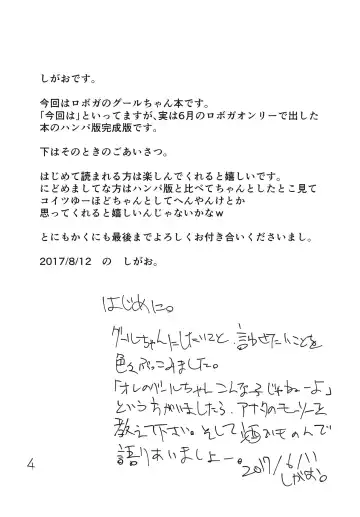 しがおです。
今回はロボガのグールちゃん本です。
「今回は」といってますが、実は6月のロボガオンリーで出した
本のハンパ版完成版です。
下はそのときのごあいさつ。
はじめて読まれる方は楽しんでくれると嬉しいです。
にどめましてな方はハンパ版と比べてちゃんとしたとこ見て
コイツゆーほどちゃんとしてへんやんけとか
思ってくれると嬉しいんじゃないかなw
とにもかくにも最後までよろしくお付き合いくださいまし。
2017/8/12 の しがお。
はじめに。
グールちゃんにしたいこと、言わせたいことを
色々ぶっこみました。
「オレのグールちゃんこんな子じゃねーよ」
というちがいましたら、アナタのモーソーを
教えて下さい。そして のんで
語りあいましょー。2017/6/11
しがお。
4